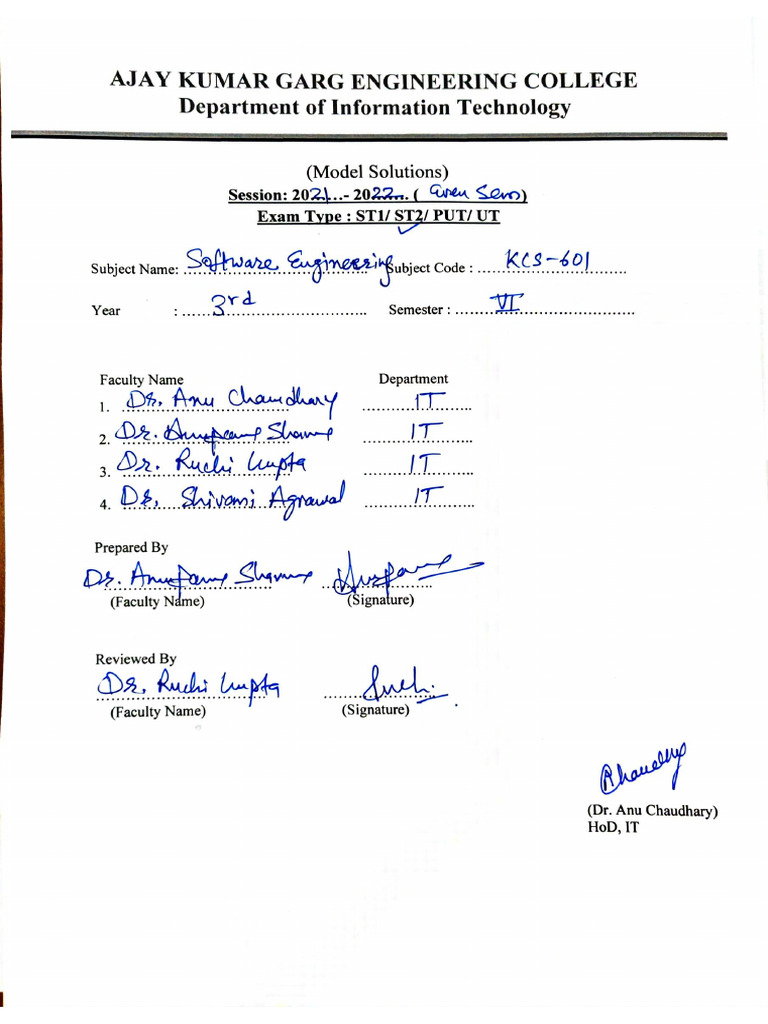 AJAY KUMAR GARG ENGINEERING COLLEGE
Department of Information Technology
(Model Solutions)
Session: 2021...- 2022.... ( Even Sem)
Exam Type : ST1/ ST2/ PUT/ UT
Subject Name: Software Engineering Subject Code : KCS-601
Year : 3rd Semester : VI
Faculty Name Department
1. Dr. Anu Chaudhary IT
2. Dr. Anupama Sharma IT
3. Dr. Ruchi Gupta IT
4. Dr. Shivani Agrawal IT
Prepared By
Dr. Anupama Sharma
(Faculty Name) (Signature)
Reviewed By
Dr. Ruchi Gupta
(Faculty Name) (Signature)
(Dr. Anu Chaudhary)
HoD, IT